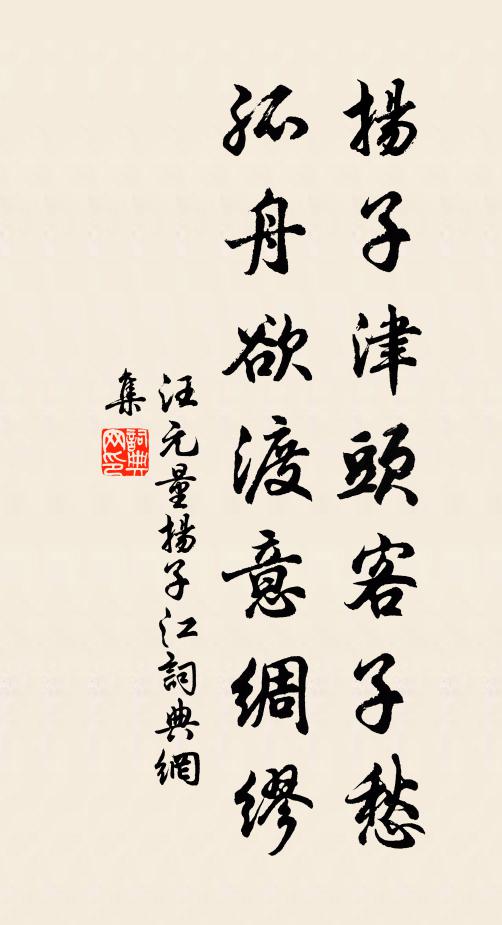 揚子津頭客子愁
孤舟欲渡意綢繆
汪元量揚子江詞典網
集
詞典
网印